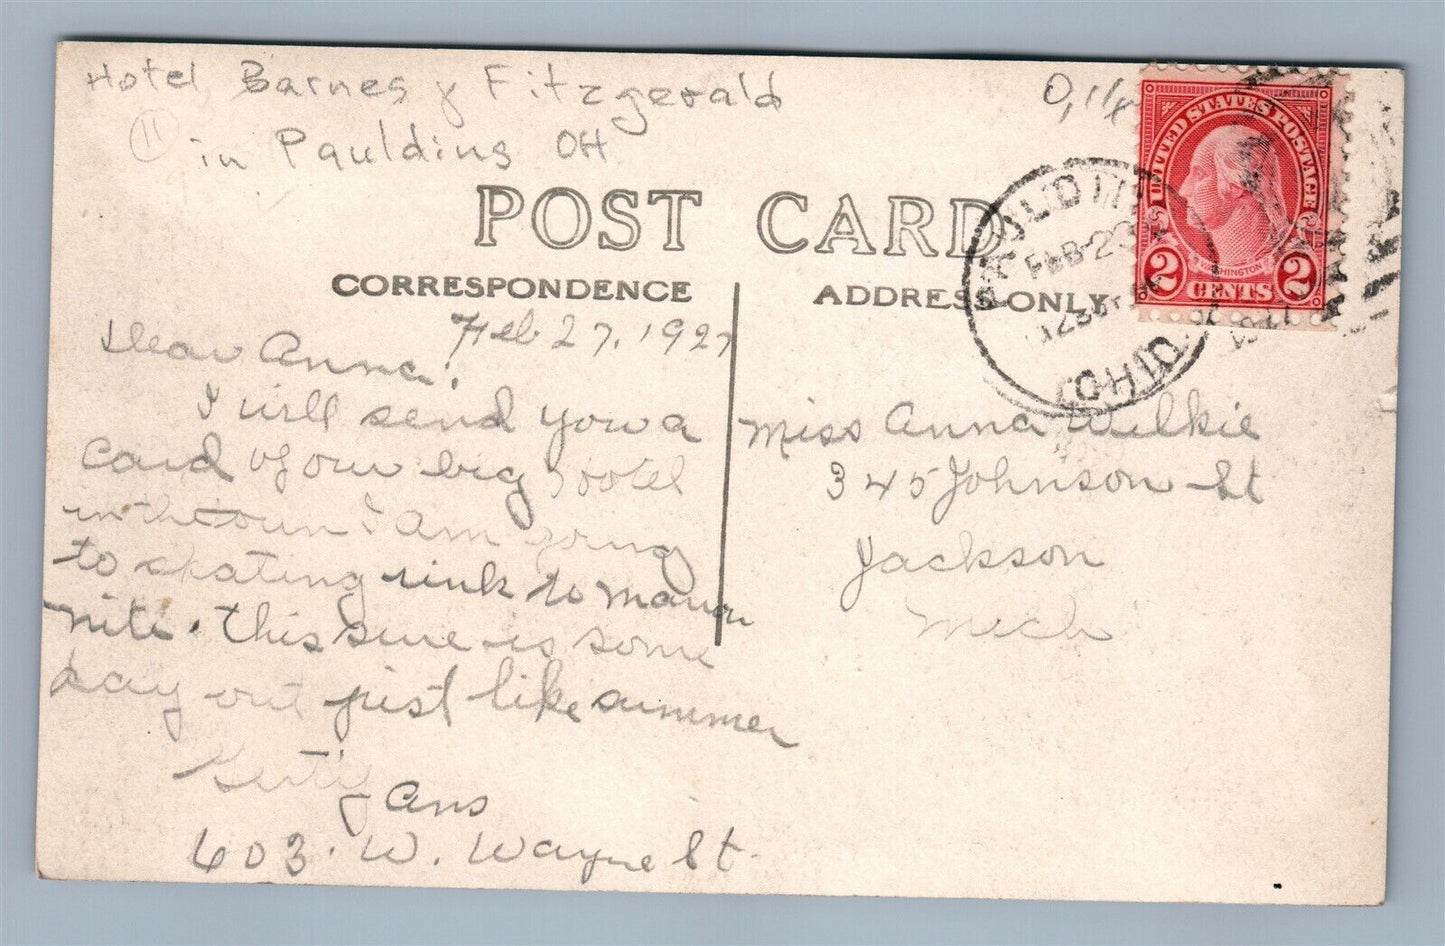 Hotel Barnes y Fitzgerald
11
in Paulding OH
POST CARD
CORRESPONDENCE
ADDRESS ONLY
PAULDING
FEB 28
OHIO
UNITED STATES POSTAGE
WASHINGTON
2 CENTS 2
Feb 27, 1927
Dear Anna:
I will send you a
card of our big hotel
in the town I am going
to skating rink to
nite. This sure is some
day out just like summer
ans
603. W. Wayne St.
Miss Anna Wilkie
345 Johnson St
Jackson
Mich